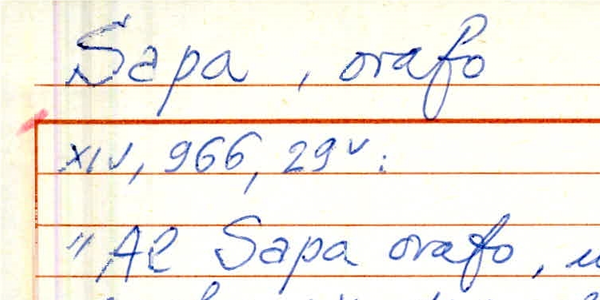 Sapa, orafo
XIV, 966, 29v:
"Al Sapa orafo,